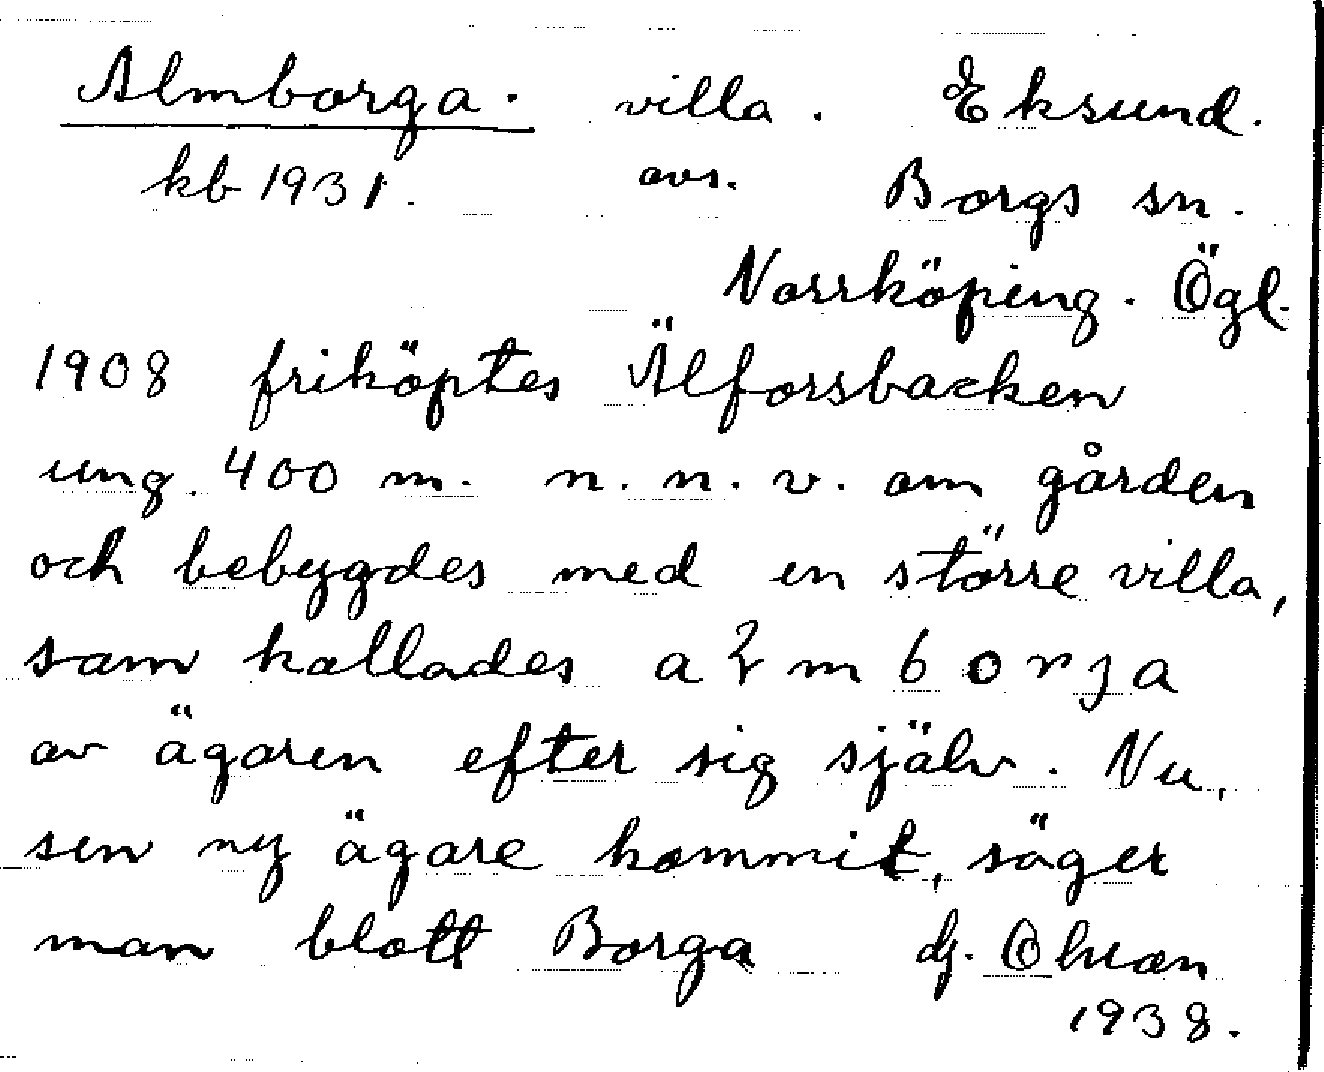 Almborga. villa. Eksund.
kb 1931. avs. Borgs sn.
Norrköping. Ögl.
1908 friköptes Älforsbacken
ung. 400 m. n. n. v. om gården
och bebygdes med en större villa,
som kallades almborja
av ägaren efter sig själv. Nu,
sen ny ägare kommit, säger
man blott Borga dj.
1938.